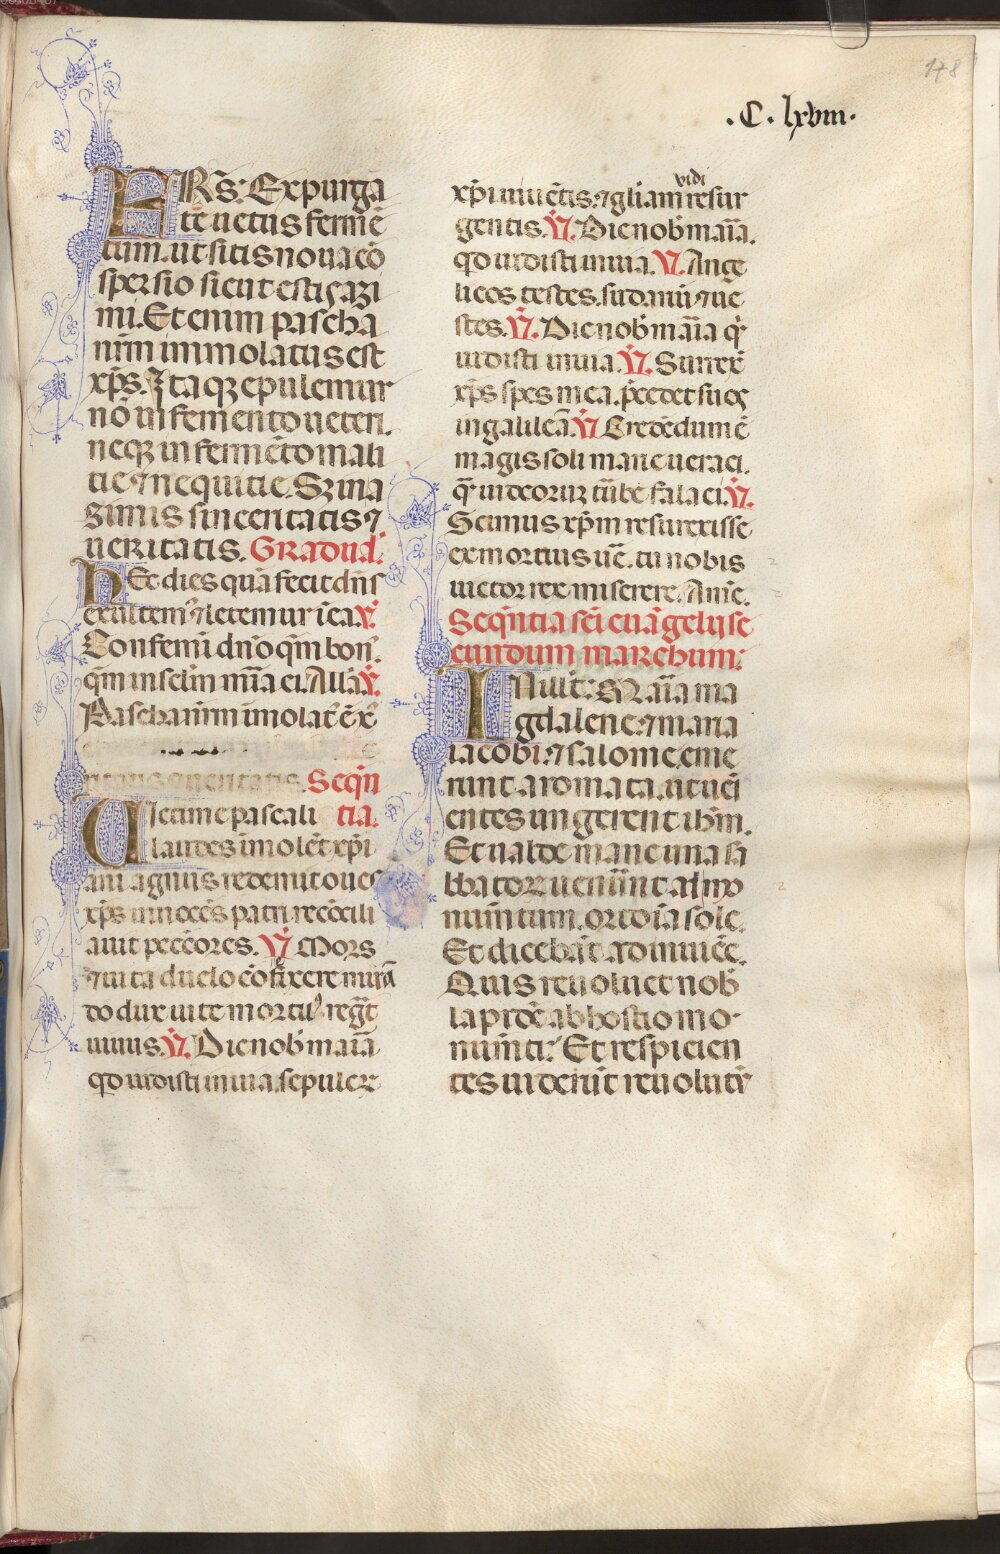 178
.C. lxviii.
FRS: Expurga
te uetus fermē
tum. ut sitis noua cō
spersio sicut estis azi
mi. Et enim pascha
nr̄m immolatus est
xp̄s. Itaqꝫ epulemur
nō in femento ueteri.
neqꝫ in fermēto mali
tie ⁊ nequitie. Sꝫ in a
zimis sinceritatis ⁊
ueritatis. Gradual̓.
Hec dies quā fecit dn̄s
exultem⁹ ⁊ letemur ī ea. ℣.
Confemī dn̄o qm̄ bon⁹.
qm̄ in sclm̄ mīa ei. Allā. ℣.
Pascha nr̄m īmolat⁹ ē xp̄
ueritatis. Sequn̄
Uictime pascali tia.
laudes īmolēt xp̄i
ani agnus redemit oues
xp̄s innocēs patri recōcili
auit peccōres. ℣. Mors
⁊ uita duelo cōfixere mirā
do dux uite mortu⁹ regt̄
uiuus. ℣. Dic nob̓ maīa
qd uidisti in uia. sepulcꝝ
xp̄i uiuētis. ⁊ gl̄iam uidi resur
gentis. ℣. Dic nob̓ maīa.
qd uidisti in uia. ℣. Ange
licos testes. sudariū ⁊ ue
stes. ℣. Dic nob̓ maīa q̓
uidisti in uia. ℣. Surrex̄
xp̄s spes mea. p̄cedet suos
in galileā. ℣. Credēdum ē
magis soli marie ueraci.
q̄ iudeoruꝫ tūbe falaci. ℣.
Scimus xp̄m resurexisse
ex mortuis ue᷒. tu nobis
uictor rex miserere. Amē.
Seqn̄tia sc̄i euāgelij se
cundum marchum:
IN illo t̓. Maīa ma
gdalene. ⁊ maria
iacobi. ⁊ salome. eme
runt aromata. ut uēi
entes ungerent ihm̄.
Et ualde mane una sa
bbatoꝝ ueniūnt ad mo
num̄tum. orto iā sole.
Et dicebāt ad inuicē.
Quis reuoluet nob̓
lapidē ab hostio mo
num̄ti: Et respicien
tes uiderūt reuolutū